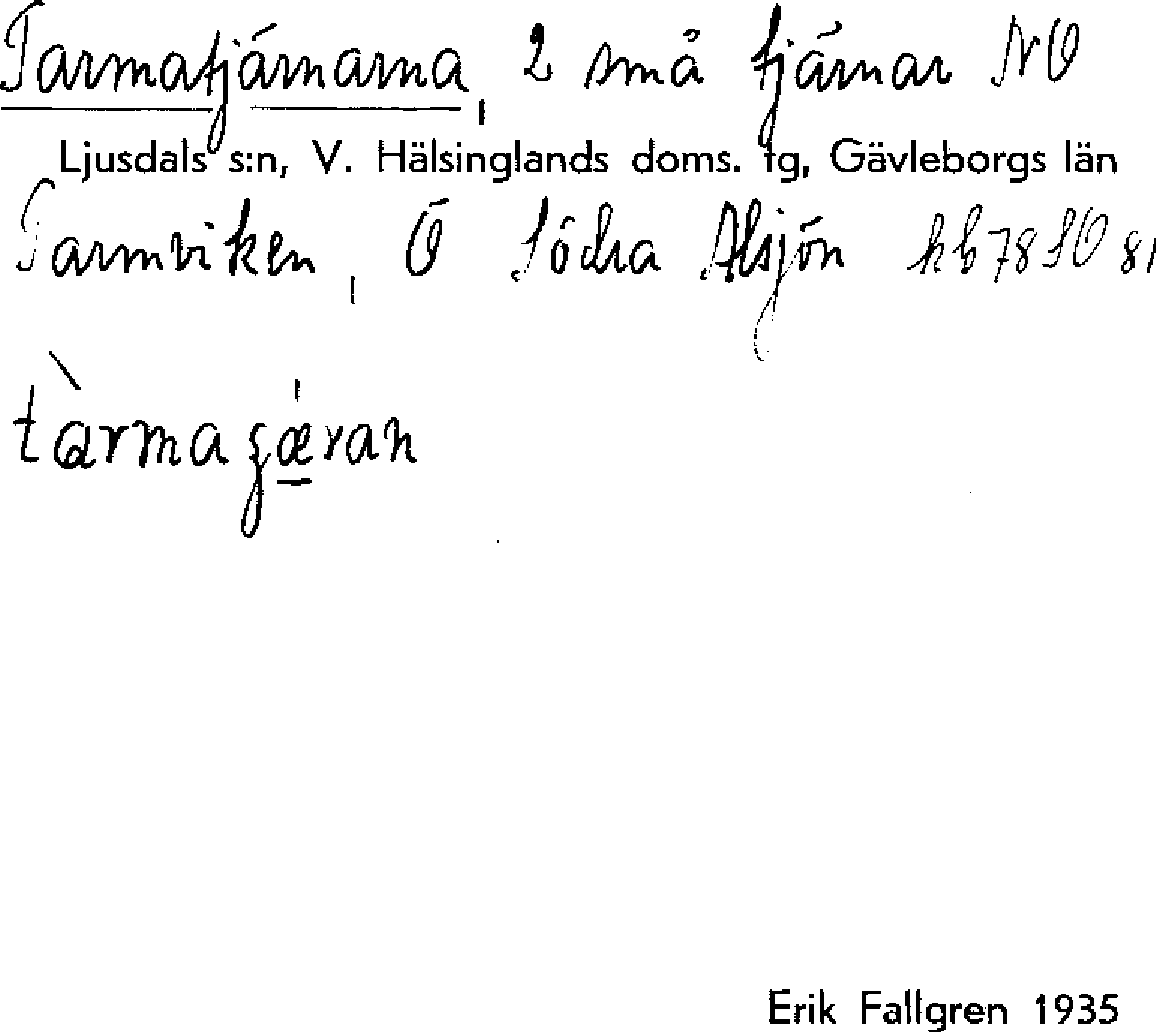 Tarmatjärnarna, 2 små tjärnar NO
Ljusdals s:n, V. Hälsinglands doms. tg, Gävleborgs län
Tarmviken, Ö Södra Alsjön kb 78 SO 81
tàrmaʂæran
Erik Fallgren 1935